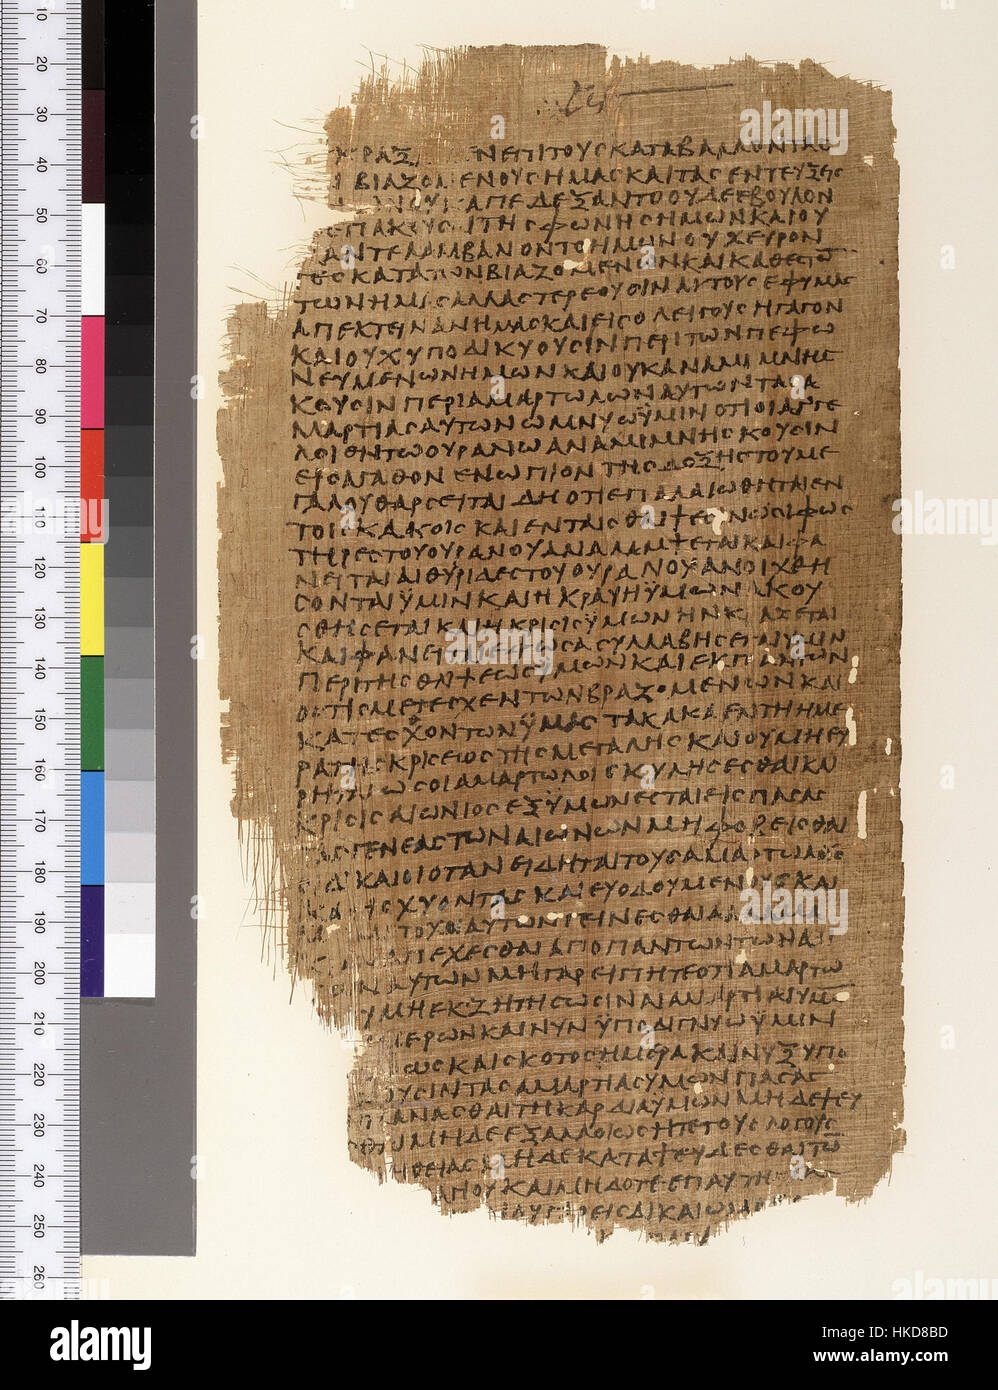 ΕΠΙΤΟΥΣΚΑΤΑΒΑΛΛΟΝΤΑΣ
ΒΙΑΖΟΜΕΝΟΥΣΗΜΑΣΚΑΙΤΑΣΕΝΤΕΥΞΕΙΣ
ΑΠΕΔΕΞΑΝΤΟΟΥΔΕΕΒΟΥΛΟΝ
ΕΠΑΚΟΥΣΑΙΤΗΣΦΩΝΗΣΗΜΩΝΚΑΙΟΥ
ΑΝΤΕΛΑΜΒΑΝΟΝΤΟΗΜΩΝΟΥΧΕΥΡΟΝ
ΤΕΣΚΑΤΑΤΩΝΒΙΑΖΟΜΕΝΩΝΚΑΙΚΑΘΕΣΤΩ
ΤΩΝΗΜΑΣΑΛΛΑΣΤΕΡΕΟΥΣΙΝΑΥΤΟΥΣΕΦΥΜΑΣ
ΑΠΕΚΤΕΙΝΑΝΗΜΑΣΚΑΙΕΙΣΟΛΕΙΓΟΥΣΗΓΑΓΟΝ
ΚΑΙΟΥΧΥΠΟΔΙΚΥΟΥΣΙΝΠΕΡΙΤΩΝΠΕΦΩ
ΝΕΥΜΕΝΩΝΗΜΩΝΚΑΙΟΥΚΑΝΑΜΙΜΝΗΣ
ΚΟΥΣΙΝΠΕΡΙΑΜΑΡΤΩΛΩΝΑΥΤΩΝΤΑΣΑ
ΜΑΡΤΙΑΣΑΥΤΩΝΟΜΝΥΩΫΜΙΝΟΤΙΟΙΑΓΓΕ
ΛΟΙΕΝΤΩΟΥΡΑΝΩΑΝΑΜΙΜΝΗΣΚΟΥΣΙΝ
ΕΙΣΑΓΑΘΟΝΕΝΩΠΙΟΝΤΗΣΔΟΞΗΣΤΟΥΜΕ
ΓΑΛΟΥΘΑΡΣΕΙΤΑΙΔΗΟΤΙΕΠΑΛΑΙΩΘΗΤΑΙΕΝ
ΤΟΙΣΚΑΚΟΙΣΚΑΙΕΝΤΑΙΣΘΛΙΨΕΣΙΝΩΣΙΦΩΣ
ΤΗΡΕΣΤΟΥΟΥΡΑΝΟΥΑΝΑΛΑΜΨΕΤΑΙΚΑΙΦΑ
ΝΕΙΤΑΙΑΙΘΥΡΙΔΕΣΤΟΥΟΥΡΑΝΟΥΑΝΟΙΧΘΗ
ΣΟΝΤΑΙΫΜΙΝΚΑΙΗΚΡΑΥΓΗΫΜΩΝΑΚΟΥ
ΣΘΗΣΕΤΑΙΚΑΙΗΚΡΙΣΙΣΫΜΩΝΗΝΚΡΑΖΕΤΑΙ
ΚΑΙΦΑΝΕΙΤΑΙΕΦΟΣΑΣΥΛΛΑΒΗΣΕΤΑΙΥΜΙΝ
ΠΕΡΙΤΗΣΘΛΙΨΕΩΣΥΜΩΝΚΑΙΕΚΠΑΝΤΩΝ
ΟΣΤΙΣΜΕΤΕΣΧΕΝΤΩΝΒΙΑΖΟΜΕΝΩΝΚΑΙ
ΚΑΤΕΣΧΟΝΤΩΝΫΜΑΣΤΑΚΑΚΑΕΝΤΗΗΜΕ
ΡΑΤΗΣΚΡΙΣΕΩΣΤΗΣΜΕΓΑΛΗΣΚΑΙΟΥΜΗΕΥ
ΡΗΤΑΙΩΣΟΙΑΜΑΡΤΩΛΟΙΣΚΥΛΗΣΕΣΘΑΙΚΑΙ
ΚΡΙΣΙΣΑΙΩΝΙΟΣΕΞΫΜΩΝΕΣΤΑΙΕΙΣΠΑΣΑΣ
ΤΑΣΓΕΝΕΑΣΤΩΝΑΙΩΝΩΝΜΗΦΟΒΕΙΣΘΑΙ
ΔΙΚΑΙΟΙΟΤΑΝΕΙΔΗΤΑΙΤΟΥΣΑΜΑΡΤΩΛΟΥΣ
ΚΑΤΙΣΧΥΟΝΤΑΣΚΑΙΕΥΟΔΟΥΜΕΝΟΥΣΚΑΙ
ΤΟΧΟΙΑΥΤΩΝΓΕΙΝΕΣΘΑΙΑΛΛΑΜΑ
ΑΠΕΧΕΣΘΑΙΑΠΟΠΑΝΤΩΝΤΩΝΑΔΙ
ΑΥΤΩΝΜΗΓΑΡΕΙΠΗΤΕΟΤΙΑΜΑΡΤΩ
ΥΜΗΕΚΖΗΤΗΣΩΣΙΝΑΙΑΜΑΡΤΙΑΙΥΜ
ΜΕΡΩΝΚΑΙΝΥΝΫΠΟΔΙΓΝΥΩΫΜΙΝ
ΩΣΚΑΙΣΚΟΤΟΣΗΜΕΡΑΚΑΙΝΥΞΥΠΟ
ΟΥΣΙΝΤΑΣΑΜΑΡΤΙΑΣΥΜΩΝΠΑΣΑΣ
ΠΛΑΝΑΣΘΑΙΤΗΚΑΡΔΙΑΥΜΩΝΜΗΔΕΨΕΥ
ΜΗΔΕΕΞΑΛΛΟΙΩΣΗΤΕΤΟΥΣΛΟΓΟΥΣ
ΗΘΕΙΑΣΜΗΔΕΚΑΤΑΨΕΥΔΕΣΘΑΙΤΩ
ΚΑΙΜΗΔΟΤΕΕΠΑΥ
ΔΙΚΑΙΩΜΑ
alamy
Image ID: HKD8BD
www.alamy.com